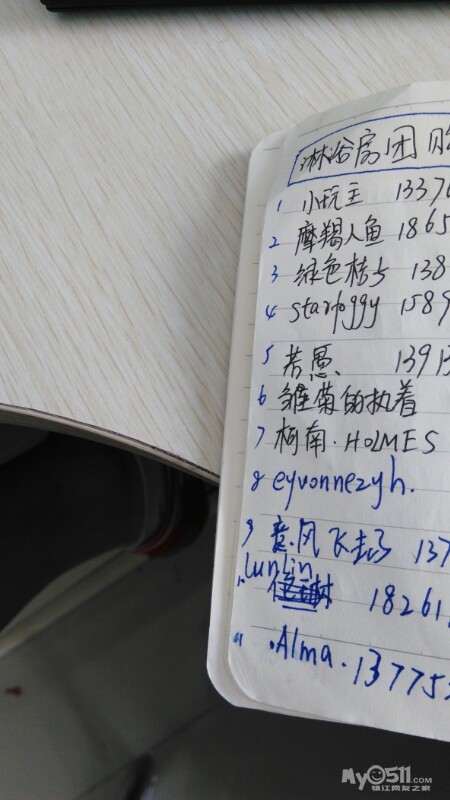 淋浴房团购
1 小玩主 13376
2 摩羯人鱼 1865
3 绿色桔 138
4 starfoggy 1589
5 若愚 1391
6 雏菊的执着
7 柯南·HOLMES
8 eyvonnezyh.
9 意风飞 137
Lunlin
10 18261
11 ·Alma·13775
My0511.com
镇江网友之家